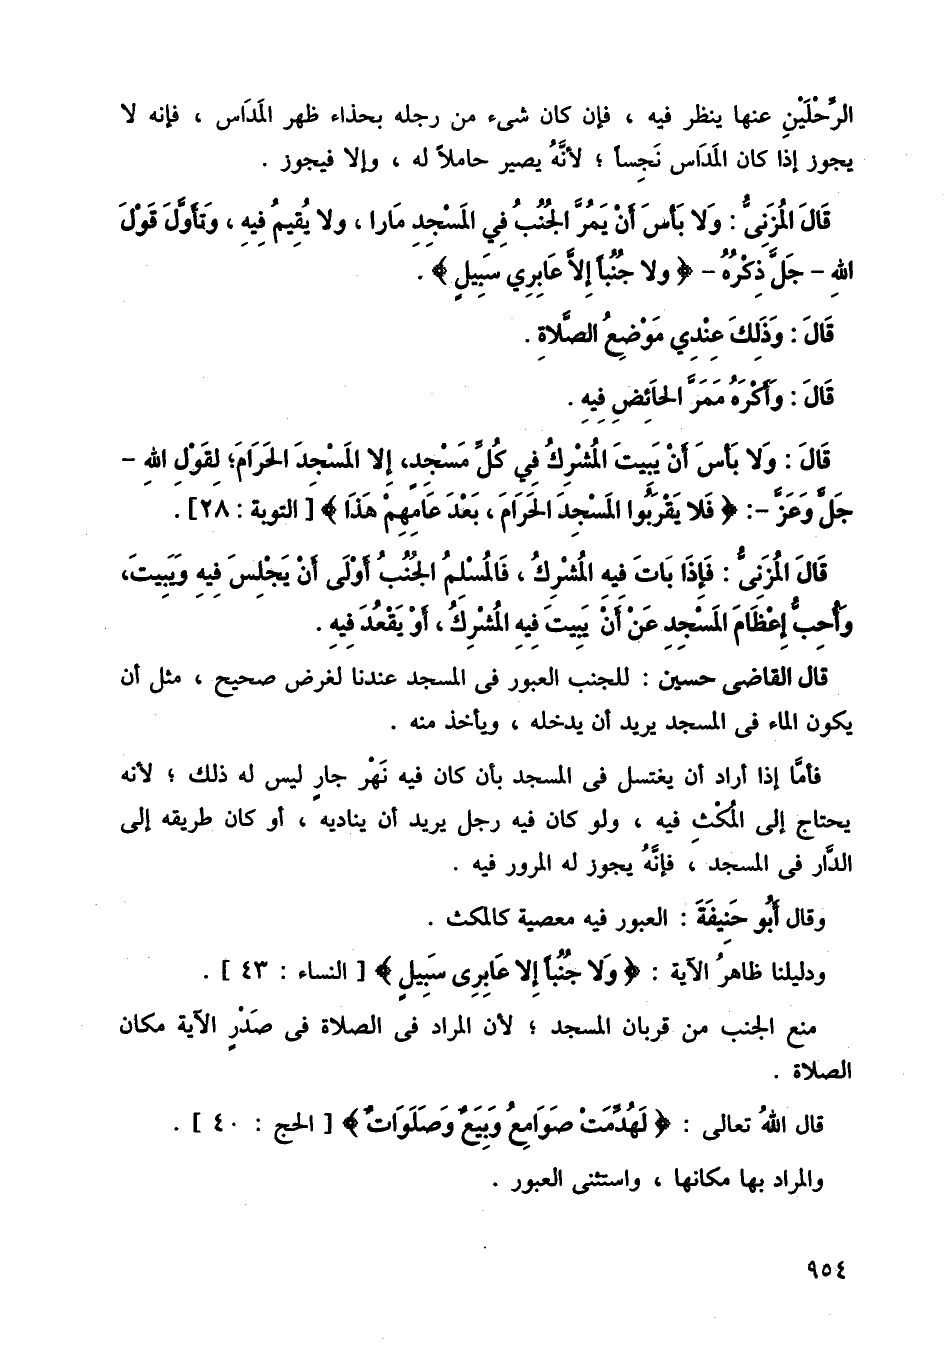 الرَّحْلَيْنِ عنها ينظر فيه ، فإن كان شىء من رجله بحذاء ظهر المَدَاس ، فإنه لا
يجوز إذا كان المَدَاس نَجِساً ؛ لأنَّهُ يصير حاملاً له ، وإلا فيجوز .
قَالَ المُزَنِىُّ : وَلا بَأسَ أَنْ يَمُرَّ الجُنُبُ فِي المَسْجِدِ مَارا ، ولا يُقِيمُ فِيهِ ، وَتَأوَّلَ قَوْلَ
اللهِ - جَلَّ ذِكْرُهُ - ﴿ ولا جُنُباً إِلاَّ عَابِرِي سَبِيلٍ ﴾ .
قَالَ : وَذَلِكَ عِنْدِي مَوْضِعُ الصَّلاةِ .
قَالَ : وَأَكْرَهُ مَمَرَّ الحَائِضِ فِيهِ .
قَالَ : وَلا بَأسَ أَنْ يَبِيتَ المُشْرِكُ فِي كُلِّ مَسْجِدٍ، إِلا المَسْجِدَ الحَرَامَ؛ لِقَوْلِ اللهِ -
جَلَّ وَعَزَّ -: ﴿ فَلا يَقْرَبُوا المَسْجِدَ الحَرَامَ ، بَعْدَ عَامِهِمْ هَذَا ﴾ [ التوبة : ٢٨] .
قَالَ المُزَنِىُّ : فَإِذَا بَاتَ فِيهِ المُشْرِكُ ، فَالمُسْلِمُ الجُنُبُ أَوْلَى أَنْ يَجْلِسَ فِيهِ وَيَبِيتَ،
وَأُحِبُّ إِعْظَامَ المَسْجِدِ عَنْ أَنْ يَبِيتَ فِيهِ المُشْرِكُ ، أَوْ يَقْعُدَ فِيهِ .
قال القاضى حسين : للجنب العبور فى المسجد عندنا لغرض صحيح ، مثل أن
يكون الماء فى المسجد يريد أن يدخله ، ويأخذ منه .
فأمَّا إذا أراد أن يغتسل فى المسجد بأن كان فيه نَهْر جارٍ ليس له ذلك ؛ لأنه
يحتاج إلى المُكْثِ فيه ، ولو كان فيه رجل يريد أن يناديه ، أو كان طريقه إلى
الدَّار فى المسجد ، فإنَّهُ يجوز له المرور فيه .
وقال أَبُو حَنِيفَةَ : العبور فيه معصية كالمكث .
ودليلنا ظاهرُ الآية : ﴿ وَلا جُنُباً إلا عَابِرِى سَبِيلٍ ﴾ [ النساء : ٤٣ ] .
منع الجنب من قربان المسجد ؛ لأن المراد فى الصلاة فى صَدْرِ الآية مكان
الصلاة .
قال اللهُ تعالى : ﴿ لَهُدِّمَتْ صَوَامِعُ وَبِيَعٌ وَصَلَوَاتٌ ﴾ [ الحج : ٤٠ ] .
والمراد بها مكانها ، واستثنى العبور .
٩٥٤